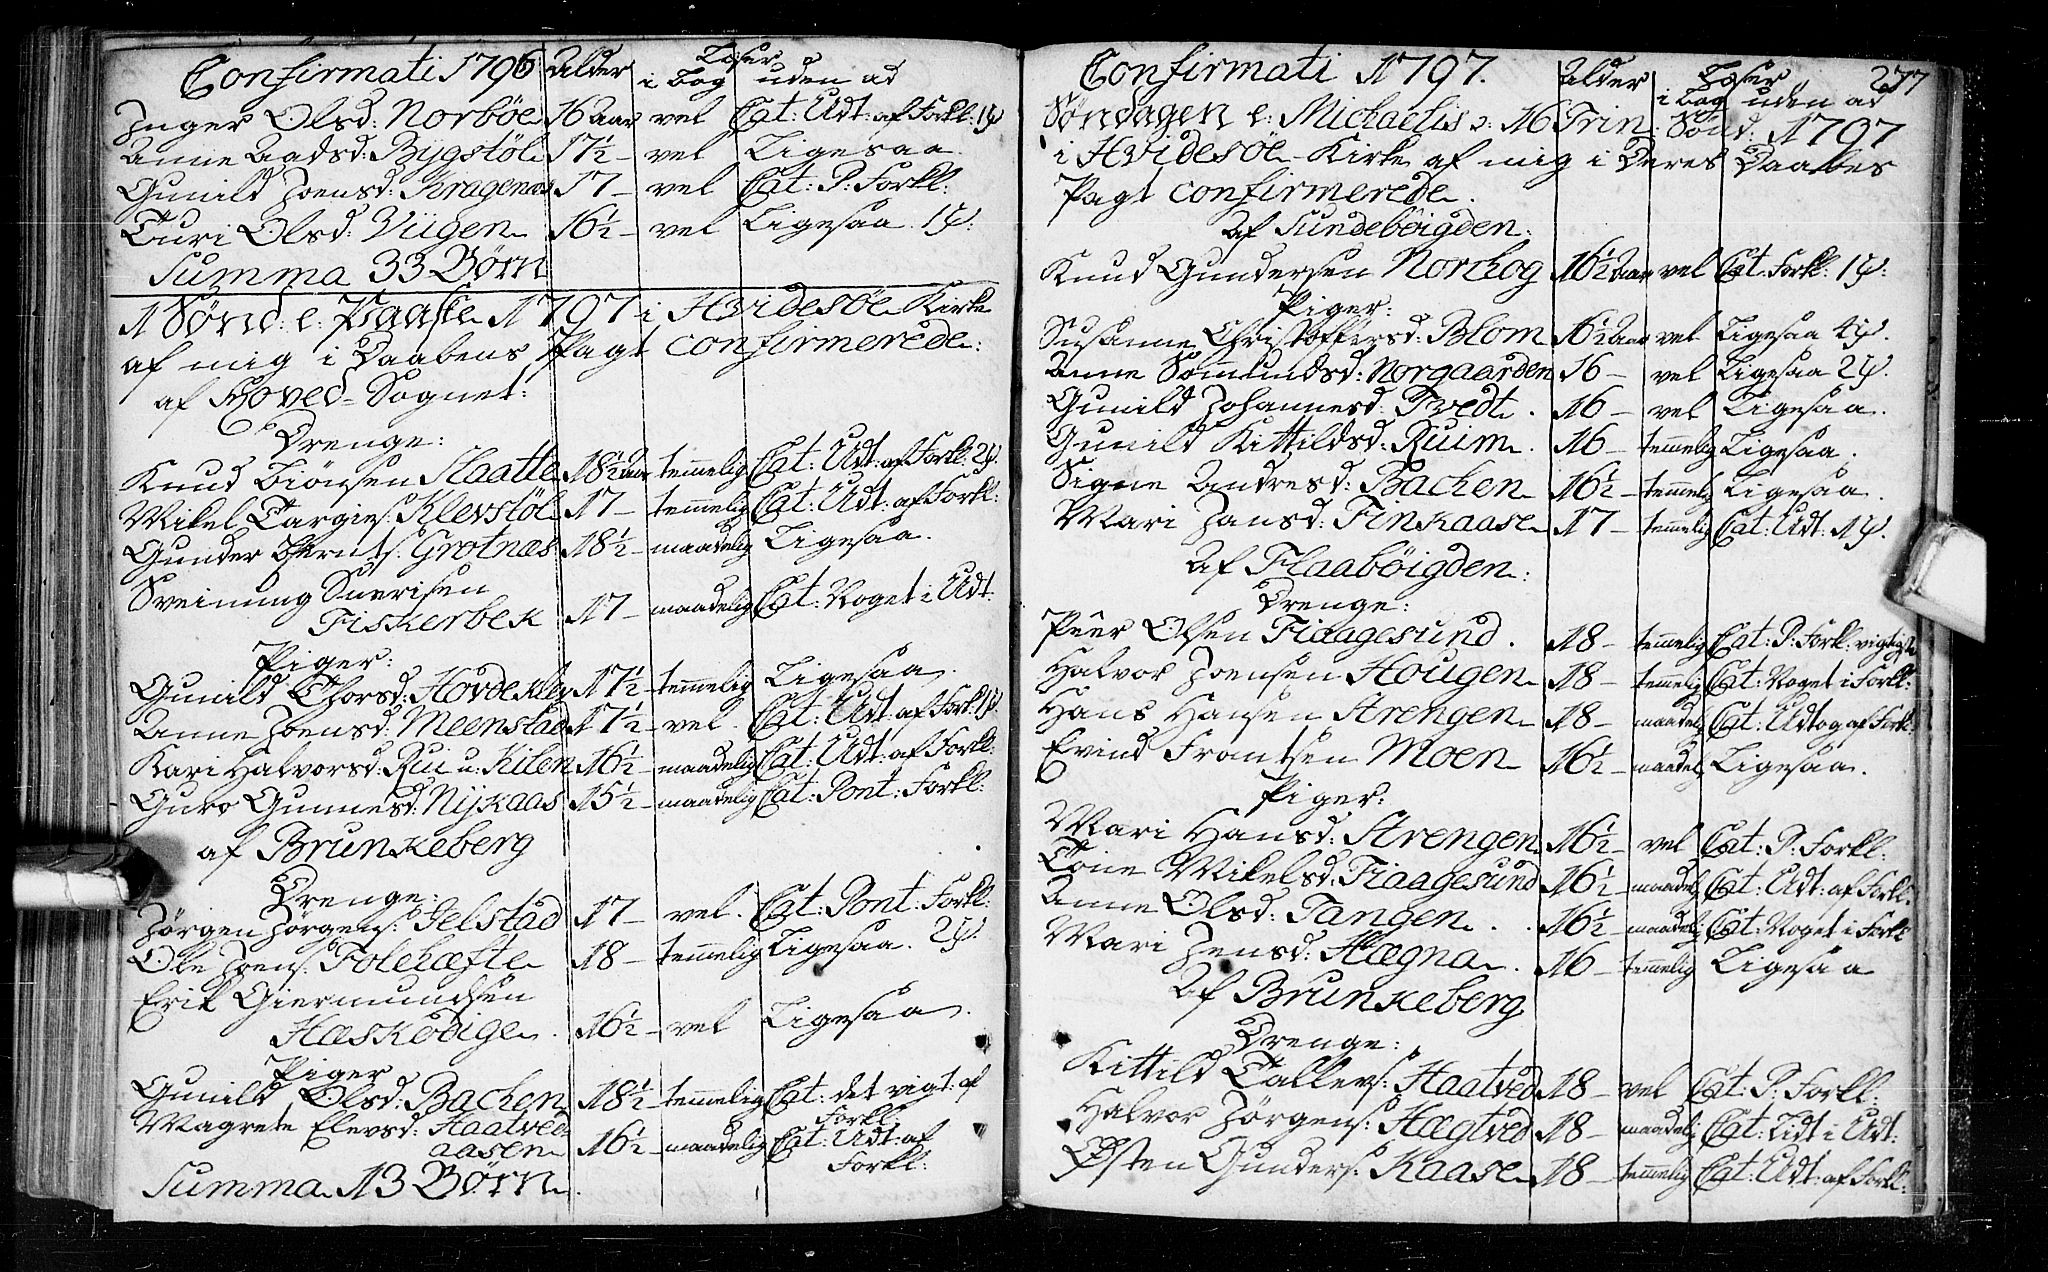 Confirmati 1796 Alder Læser
i bog uden ad
Inger Olsd: Norbøe 16 aar vel Cat: Udt: af Forkl: 1 ψ
Anne Aadsd: Bygstøl 17½ – vel Ligesaa
Gunild Joensd: Kragenæs 17 – vel Cat: P: Forkl:
Turi Olsd: Viigen 16½ – vel Ligesaa 1 ψ:
Summa 33 Børn
1 Sønd: e: Paaske 1797 i Hvidesøe Kirke
af mig i Daabens Pagt confirmerede:
af Hoved-Sognet:
Drenge:
Knud Biønsen Slaatte 18½ aar temmelig Cat: Udt: af Forkl: 2 ψ.
Mikel Targies: Klevstøl 17 – temmelig Cat: Udt: af Forkl:
Gunder Bernts: Grotnæs 18½ – maadelig Ligesaa.
Sveinung Snerisen
Fiskerbek 17 – maadelig Cat: Noget i Udt:
Piger:
Gunild Thorsd: Hovdekley 17½ – temmelig Ligesaa.
Anne Joensd: Meenstad 17½ – vel. Cat: Udt: af Forkl: 1 ψ.
Kari Halvorsd: Rui u: Kilen 16½ – maadelig Cat: Udt: af Forkl:
Guro Gunnesd: Nykaas 15½ – maadelig Cat: Pont: Forkl:
af Brunkeberg
Drenge:
Jørgen Jørgens: Gelstad 17 – vel. Cat: Pont: Forkl:
Ole Joens: Folehæfte 18 – temmelig Ligesaa. 2 ψ.
Erik Giermundsen
Hæskodige. 16½ – vel Ligesaa.
Piger
Gunild Olsd: Bachen 18½ – temmelig Cat: det vigt: af
Forkl:
Magrete Elevsd: Haatved-
aasen 16½ – maadelig Cat: Udt: af
Forkl:
Summa 13 Børn.
Confirmati 1797. Alder Læser 277
i bog uden ad
Søndagen e: Michaelis o: 16 Trin: Sønd: 1797
i Hvidesøe Kirke af mig i Deres Daabes
Pagt confirmerede.
Af Sundebøigden.
Knud Gundersen Norhog 16½ Aar vel Cat: Forkl: 1 ψ:
Piger:
Susanne Christoffersd: Blom 16½ Aar vel Ligesaa 4 ψ.
Anne Somundsd: Norgaarden 16 – vel Ligesaa 2 ψ.
Gunild Johannesd: Tvedt. 16 – vel Ligesaa.
Gunild Kittildsd: Ruim. 16 – temmelig Ligesaa.
Signe Andresd: Bachen 16½ – temmelig Ligesaa.
Mari Jansd: Finkaase 17 – temmelig Cat: Udt: 1 ψ.
Af Flaabøigden:
Drenge:
Peer Olsen Fiaagesund. 18 – temmelig Cat: P: Forkl: vigtigste
Halvor Joensen Hougen 18 – temmelig Cat: Noget i Forkl:
Hans Hansen Strengen 18 – maadel: Cat: Udtog af Forkl:
Evind Frantsen Moen 16½ – maadel: Ligesaa.
Piger:
Mari Hansd: Strengen 16½ – vel Cat: P: Forkl:
Tone Mikelsd: Fiaagesund 16½ – maadel: Cat: Udt: af Forkl:
Anne Olsd: Tangen. 16½ – maadelig Cat: Noget i Forkl:
Mari Jensd: Hægna. 16 – temmelig Ligesaa
Af Brunkeberg
Drenge:
Kittild Tallevs: Haatved 18 – vel Cat: P: Forkl:
Halvor Jørgens: Hægtved 18 – maadelig Cat: Lidt i Udt:
Østen Gunders: Kaase 18 – temmelig Cat: Udt: af Forkl: